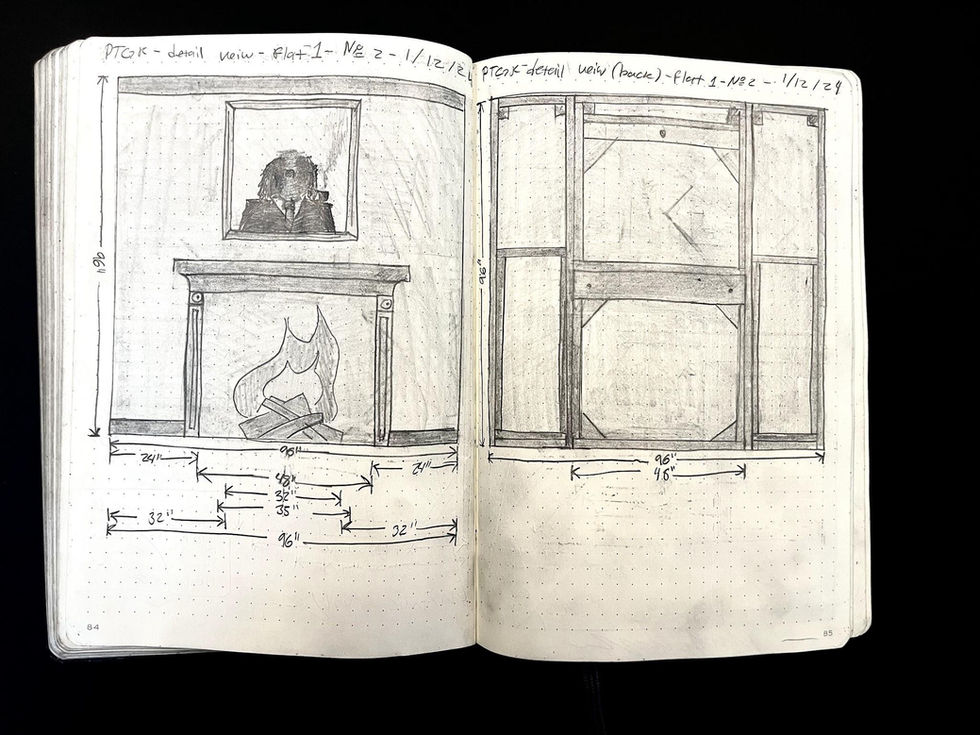 PTGK - detail veiw - flat 1 - № 2 - 1/12/24
96"
96"
24"
24"
48"
32"
35"
32"
32"
96"
84
PTGK - detail veiw (back) - flat 1 - № 2 - 1/12/24
96"
96"
48"
85